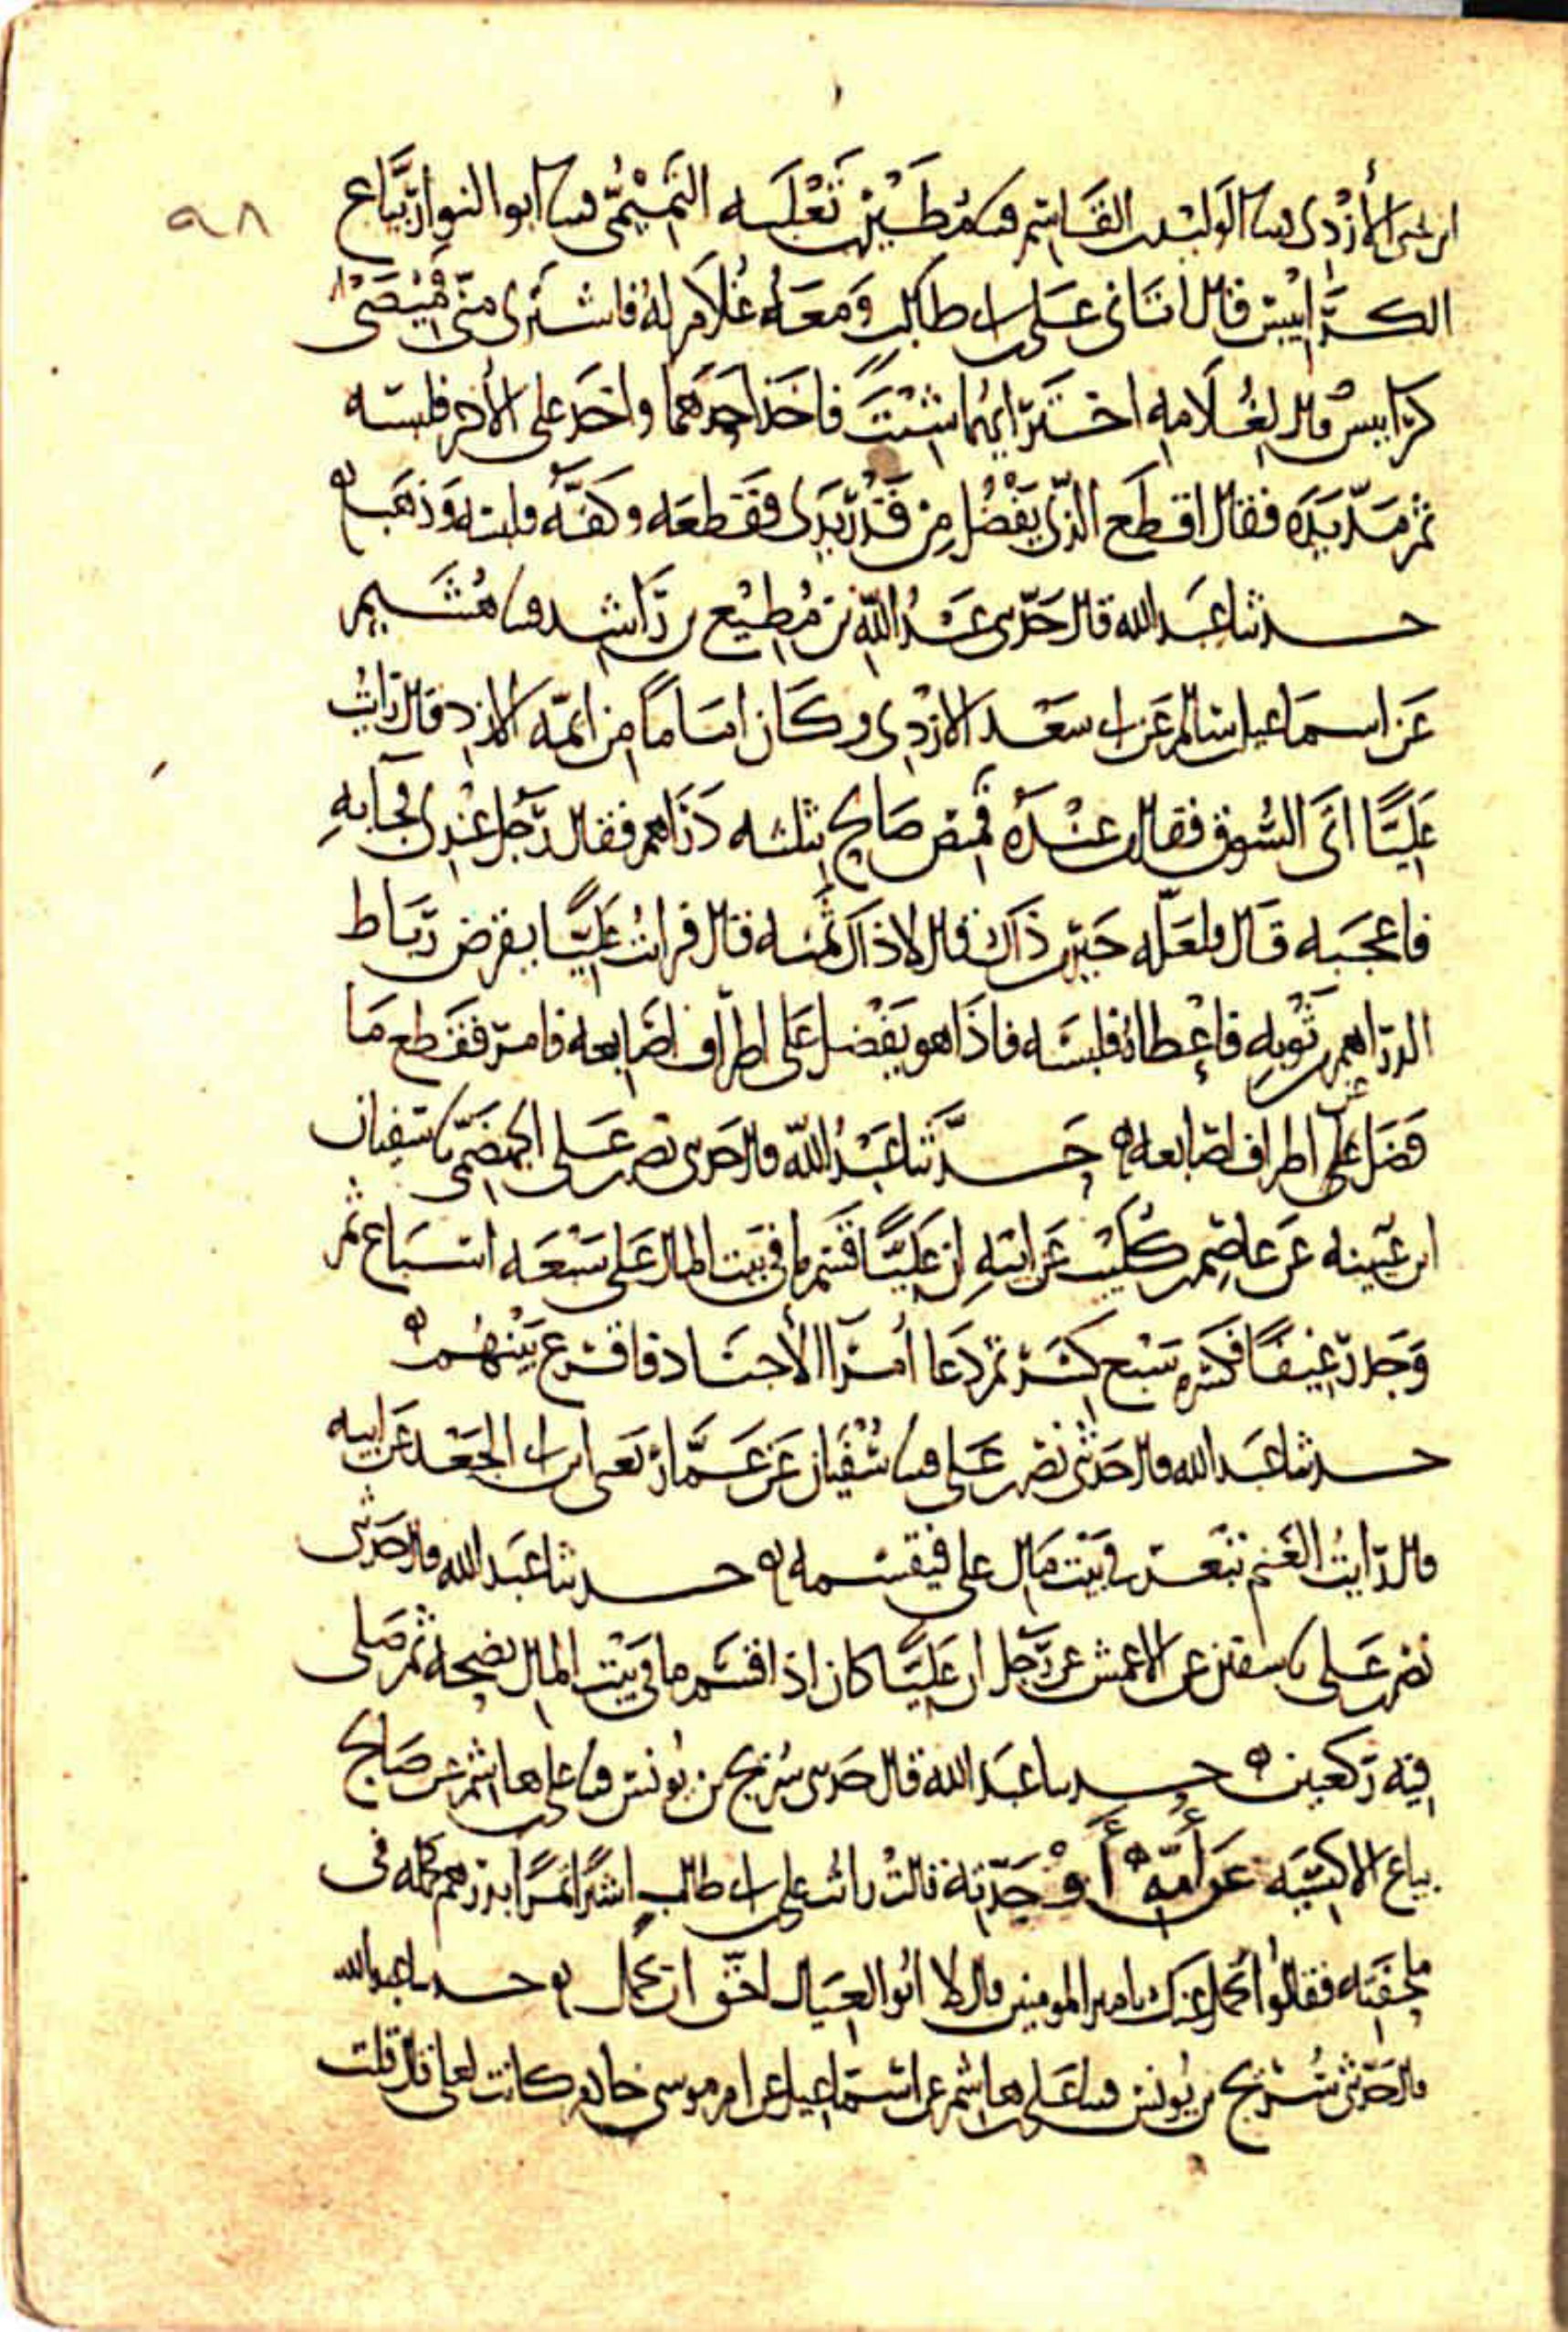 ٩٨
ابن يحيى الأزدي نا الوليد بن القاسم نا مطير بن ثعلبه التميمي نا ابو النوار بياع
الكرابيس قال اتاني على بن ابى طالب ومعه غلام له فاشترى مني قميصي
كرابيس قال لغلامه اختر ايهما شئت فاخذ احدهما واخذ على الاخر فلبسه
ثم مد يده فقال اقطع الذي يفضل من قدر يدى فقطعه وكفه ولبسه وذهب
حدثنا عبد الله قال حدثنى عبد الله بن مطيع بن راشد نا هشيم
عن اسماعيل بن سالم عن ابى سعد الازدى وكان اماما من ايمه الازد قال رايت
عليا اتى السوق فقال من عنده قميص صالح بثلثه دراهم فقال رجل عندى فجا به
فاعجبه قال فلعله خير من ذاك قال لا ذاك ثمنه قال فرايت عليا يقرض رباط
الدراهم من ثوبه فاعطاه فلبسه فاذا هو يفضل على اطراف اصابعه فامر فقطع ما
فضل على عن اطراف اصابعه حدثنا عبد الله قال حدثنى نصر بن على الجهضمي نا سفيان
ابن عيينه عن عاصم بن كليب عن ابيه ان عليا قسم ما في بيت المال على سبعه اسباع ثم
وجد رغيفا فكسره سبع كسر ثم دعا امرا الأجناد فاقرع بينهم
حدثنا عبد الله قال حدثني نصر بن على نا سفيان عن عمار يعنى ابن ابى الجعد عن ابيه
قال رايت الغنم تبعر في بيت مال على فيقسمه حدثنا عبد الله قال حدثنى
نصر بن على نا سفين عن الاعمش عن رجل ان عليا كان اذا قسم ما في بيت المال نضحه ثم صلى
فيه ركعتين حدثنا عبد الله قال حدثنى سريج بن يونس نا على بن هاشم عن صالح
بياع الاكسيه عن أمه أو جدته قالت رايت على بن ابى طالب اشترا تمرا بدرهم فحمله في
ملحفته فقالوا نحمل عنك يا امير المومنين قال لا ابو العيال احق ان يحمل حدثنا عبد الله
قال حدثني سريج بن يونس نا على بن هاشم عن اسماعيل عن ام موسى خادم كانت لعلى قال قلت